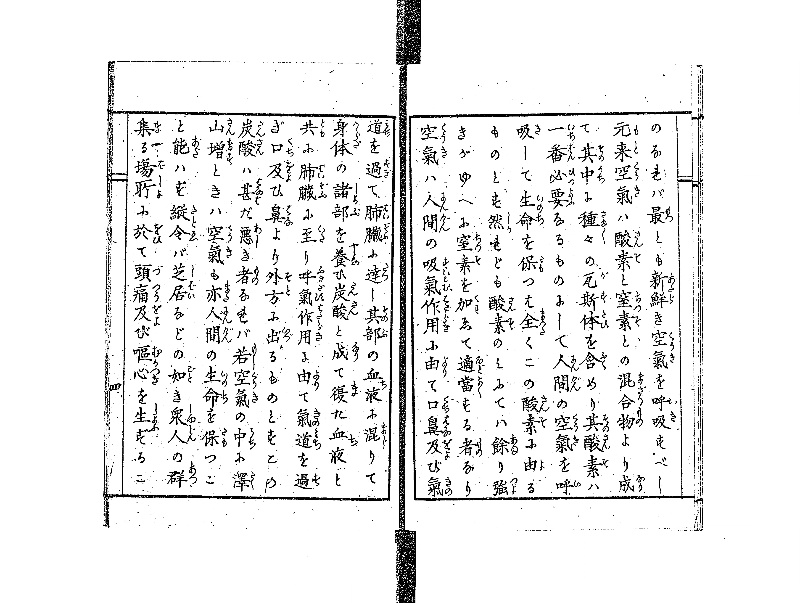 のなれバ最とも新鮮き空氣を呼吸すべし
元来空氣ハ酸素と窒素との混合物より成
て其中に種々の瓦斯体を含めり其酸素ハ
一番必要なるものにして人間の空氣を呼
吸して生命を保つも全くこの酸素に由る
ものとも然れども酸素のミにてハ餘り強
きがゆへに窒素を加ゑて適當する者なり
空氣ハ人間の吸氣作用に由て口鼻及び氣
道を過て肺臓に達し其部の血液に混りて
身体の諸部を養ひ炭酸と成て復た血液と
共に肺臓に至り呼氣作用に由て氣道を過
ぎ口及ひ鼻より外方に出るものとすこの
炭酸ハ甚だ悪き者なれバ若空氣の中に澤
山増ときハ空氣も亦人間の生命を保つこ
と能ハず縦令バ芝居などの如き衆人の群
集る場所に於て頭痛及び嘔心を生するこ
四